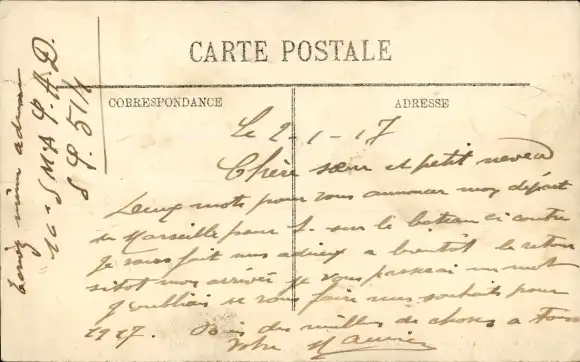 CARTE POSTALE
CORRESPONDANCE
ADRESSE
Le 2-1-17
Chère sœur et petit neveu
Deux mots pour vous annoncer mon départ
de Marseille pour S. sur le bateau ci contre
je vous fait mes adieux a bientôt le retour
sitot mon arrivée je vous passerai un mot
j'oubliais de vous faire mes souhaits pour
1917. Bien des milles de choses a Tous
Votre
même adresse
S.P. 511